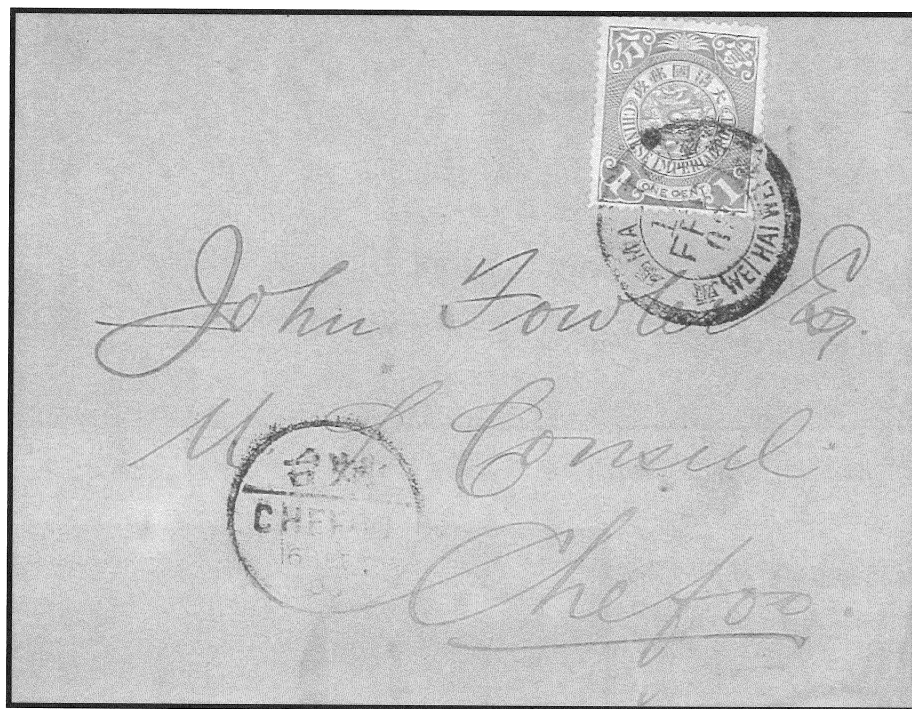 分 壹
大清國郵政
CHINESE IMPERIAL POST
1 ONE CENT 1
WEI HAI WEI
John Fowler Esq.
U. S. Consul
Chefoo.
台烟
CHEFOO
16